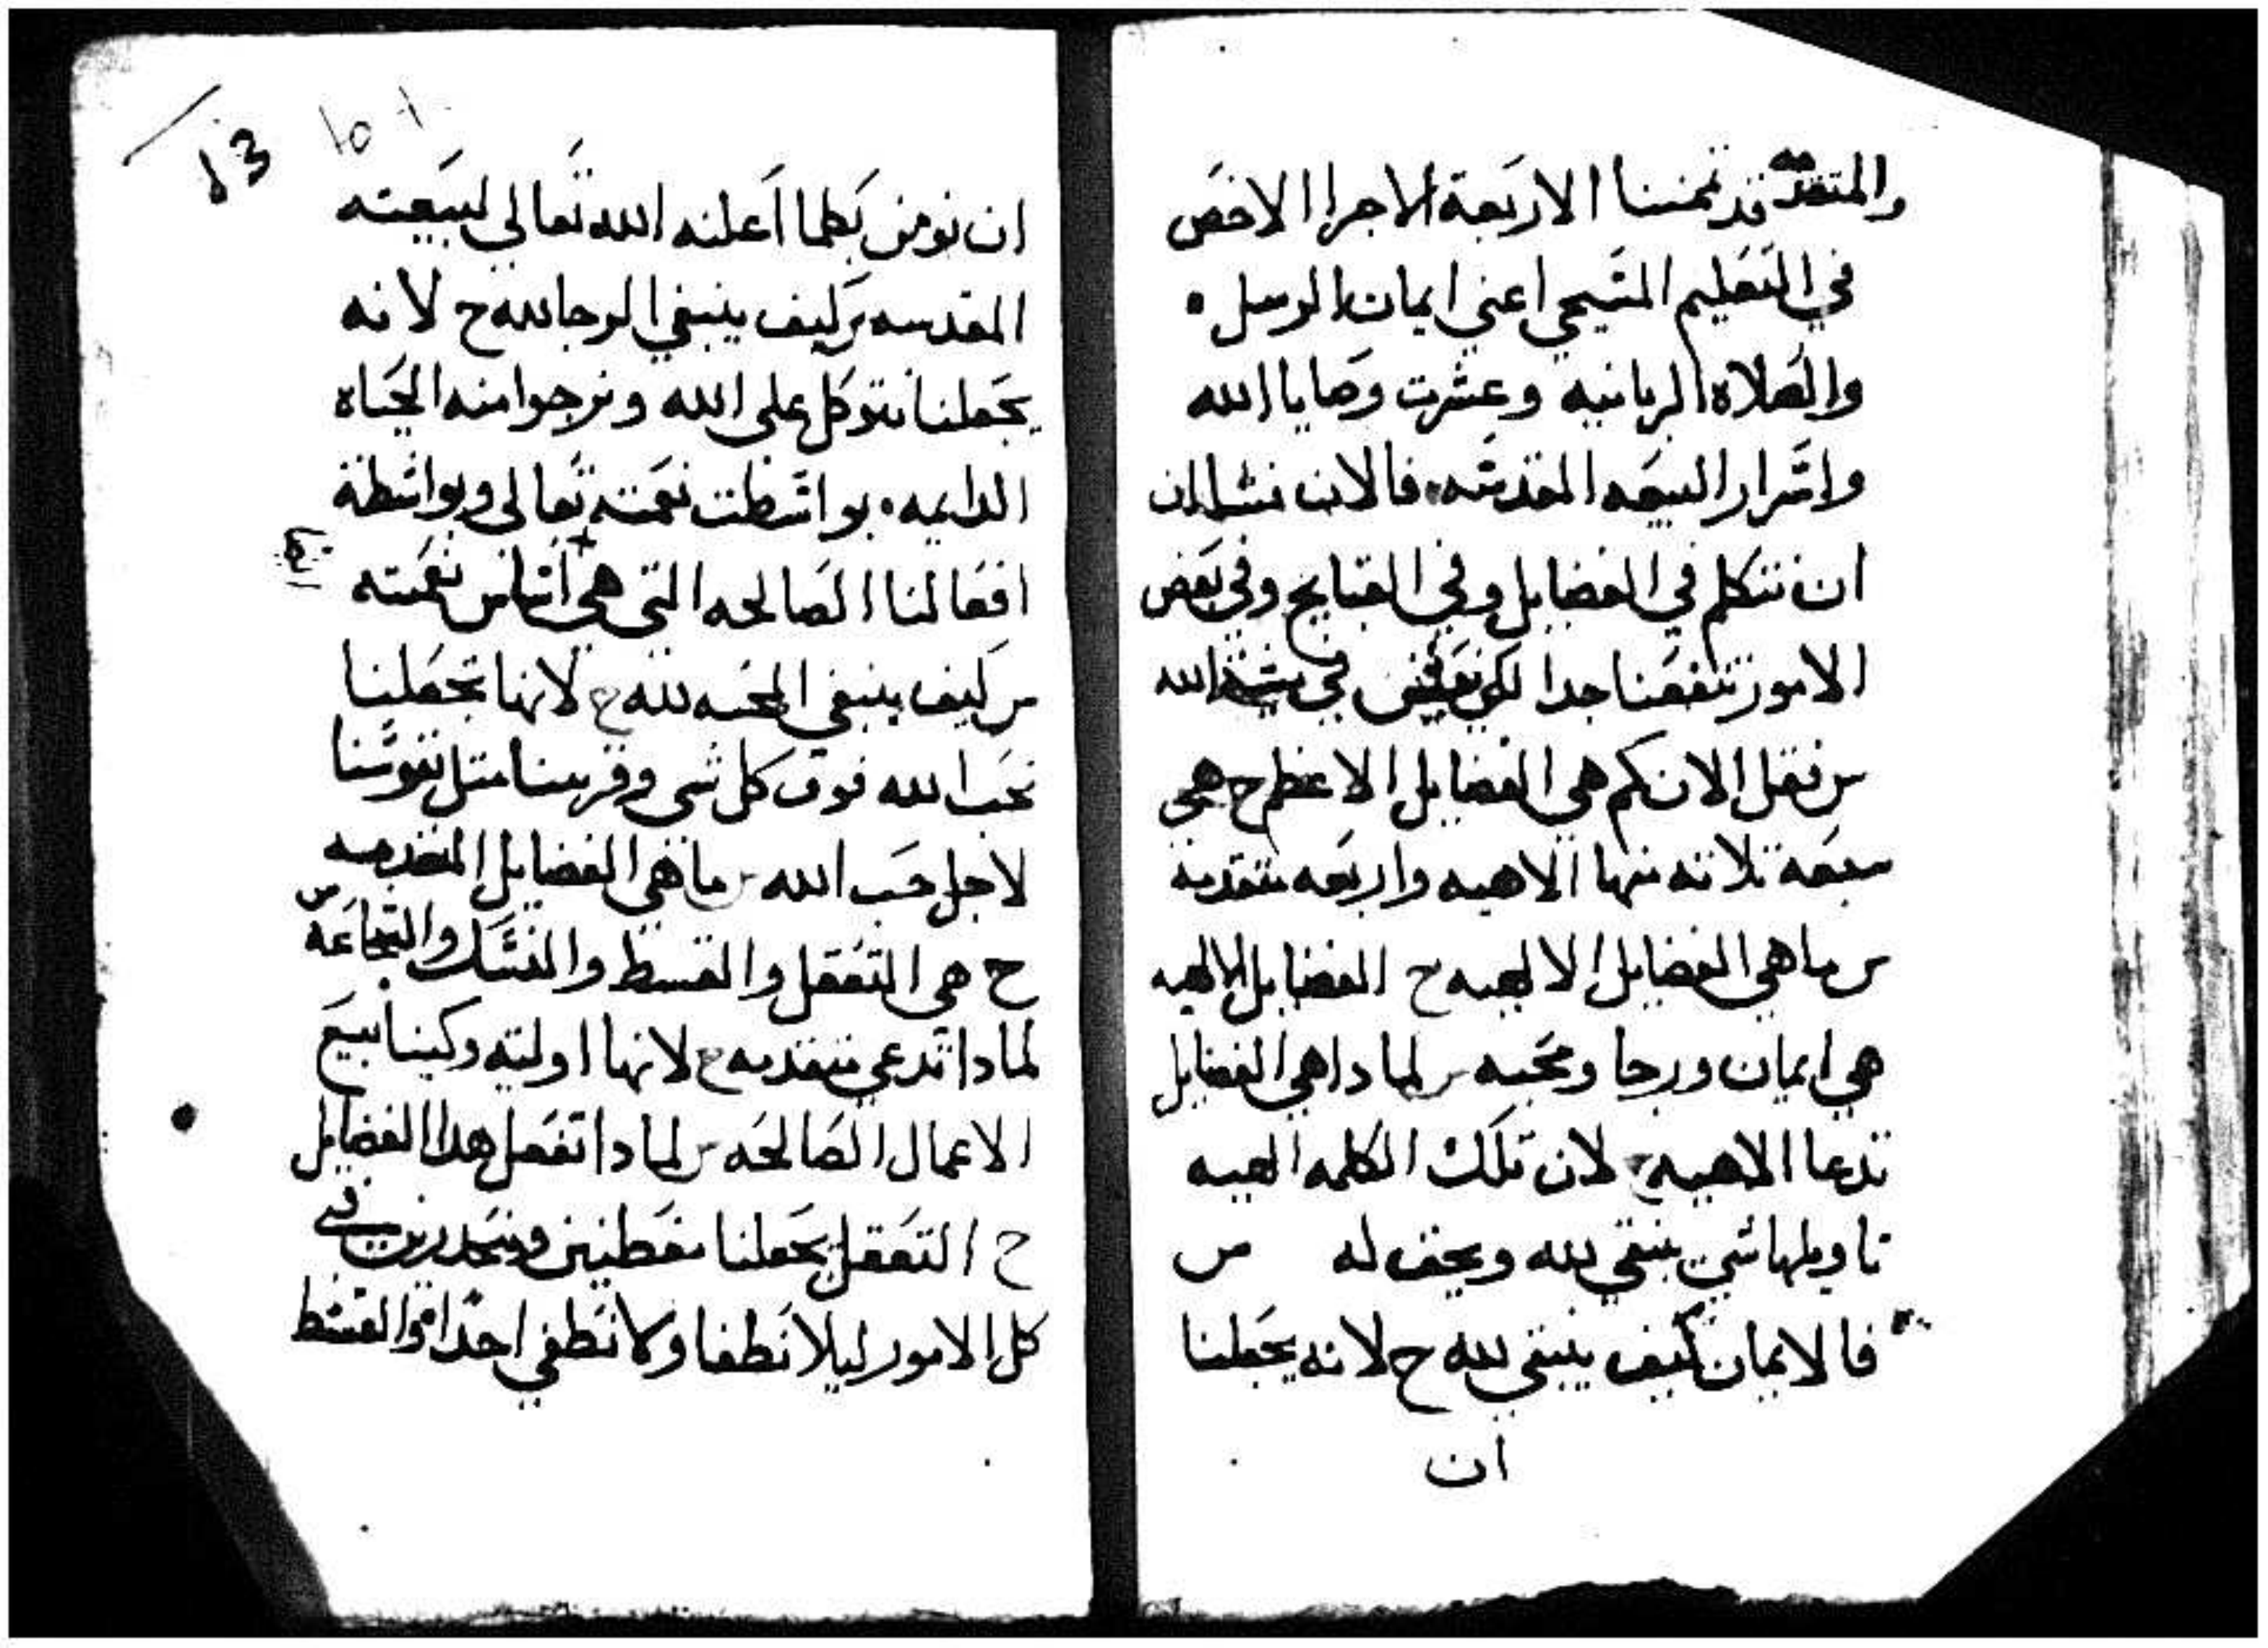 والمتقدمه قد تممنا الاربعة الاجزا الاخص
في التعليم المسيحي اعني ايمان الرسل ٥
والصلاة الربانيه وعشرت وصايا الله
واسرار البيعه المقدسه. فالان نشا ان
ان نتكلم في الفضايل وفي القبايح وفي بعض
الامور تنفعنا جدا لكي في الله
س نقل الان كم هي الفضايل الاعظم ح هي
سبعة تلاته منها الاهيه واربعه متقدمة
س ما هي الفضايل الالهيه ح الفضايل الالهيه
هي ايمان ورجا ومحبه س لمادا هي الفضايل
تدعا الاهيه ح لان تلك الكلمه الهيه
تاويلها شي ينبغي لله ويحق له س
فالايمان كيف ينبغي لله ح لانه يجعلنا
ان
13
ان نومن بكلما اعلنه الله تعالي لبيعته
المقدسه س كيف ينبغي الرجا لله ح لانه
يجعلنا نتوكل علي الله ونرجوا منه الحياه
الدايمه. بواسطت نعمته تعالي وبواسطة
افعالنا الصالحه التي هي اتمار نعمته
س كيف ينبغي المحبه لله ح لانها تجعلنا
نحب الله فوق كل شي وقريبنا متل نفوسنا
لاجل حب الله س ما هي الفضايل المتقدمه
ح هي التعقل والقسط والنسك والشجاعه س
لمادا تدعي متقدمه ح لانها اوليه وكينابيع
الاعمال الصالحه س لمادا تفعل هدا الفضايل
ح التعقل يجعلنا مفطنين ومتحدرين في
كل الامور ليلا نطغا ولا نطغي احدا والقسط